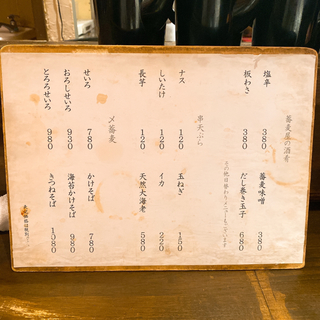 蕎麦屋の酒肴
塩辛 380
板わさ 380
蕎麦味噌 380
だし巻き玉子 680
その他日替わりメニューもございます
串天ぷら
ナス 120
しいたけ 120
長芋 120
玉ねぎ 150
イカ 220
天然大海老 580
〆蕎麦
せいろ 780
おろしせいろ 930
とろろせいろ 980
かけそば 780
海苔かけそば 980
きつねそば 1080